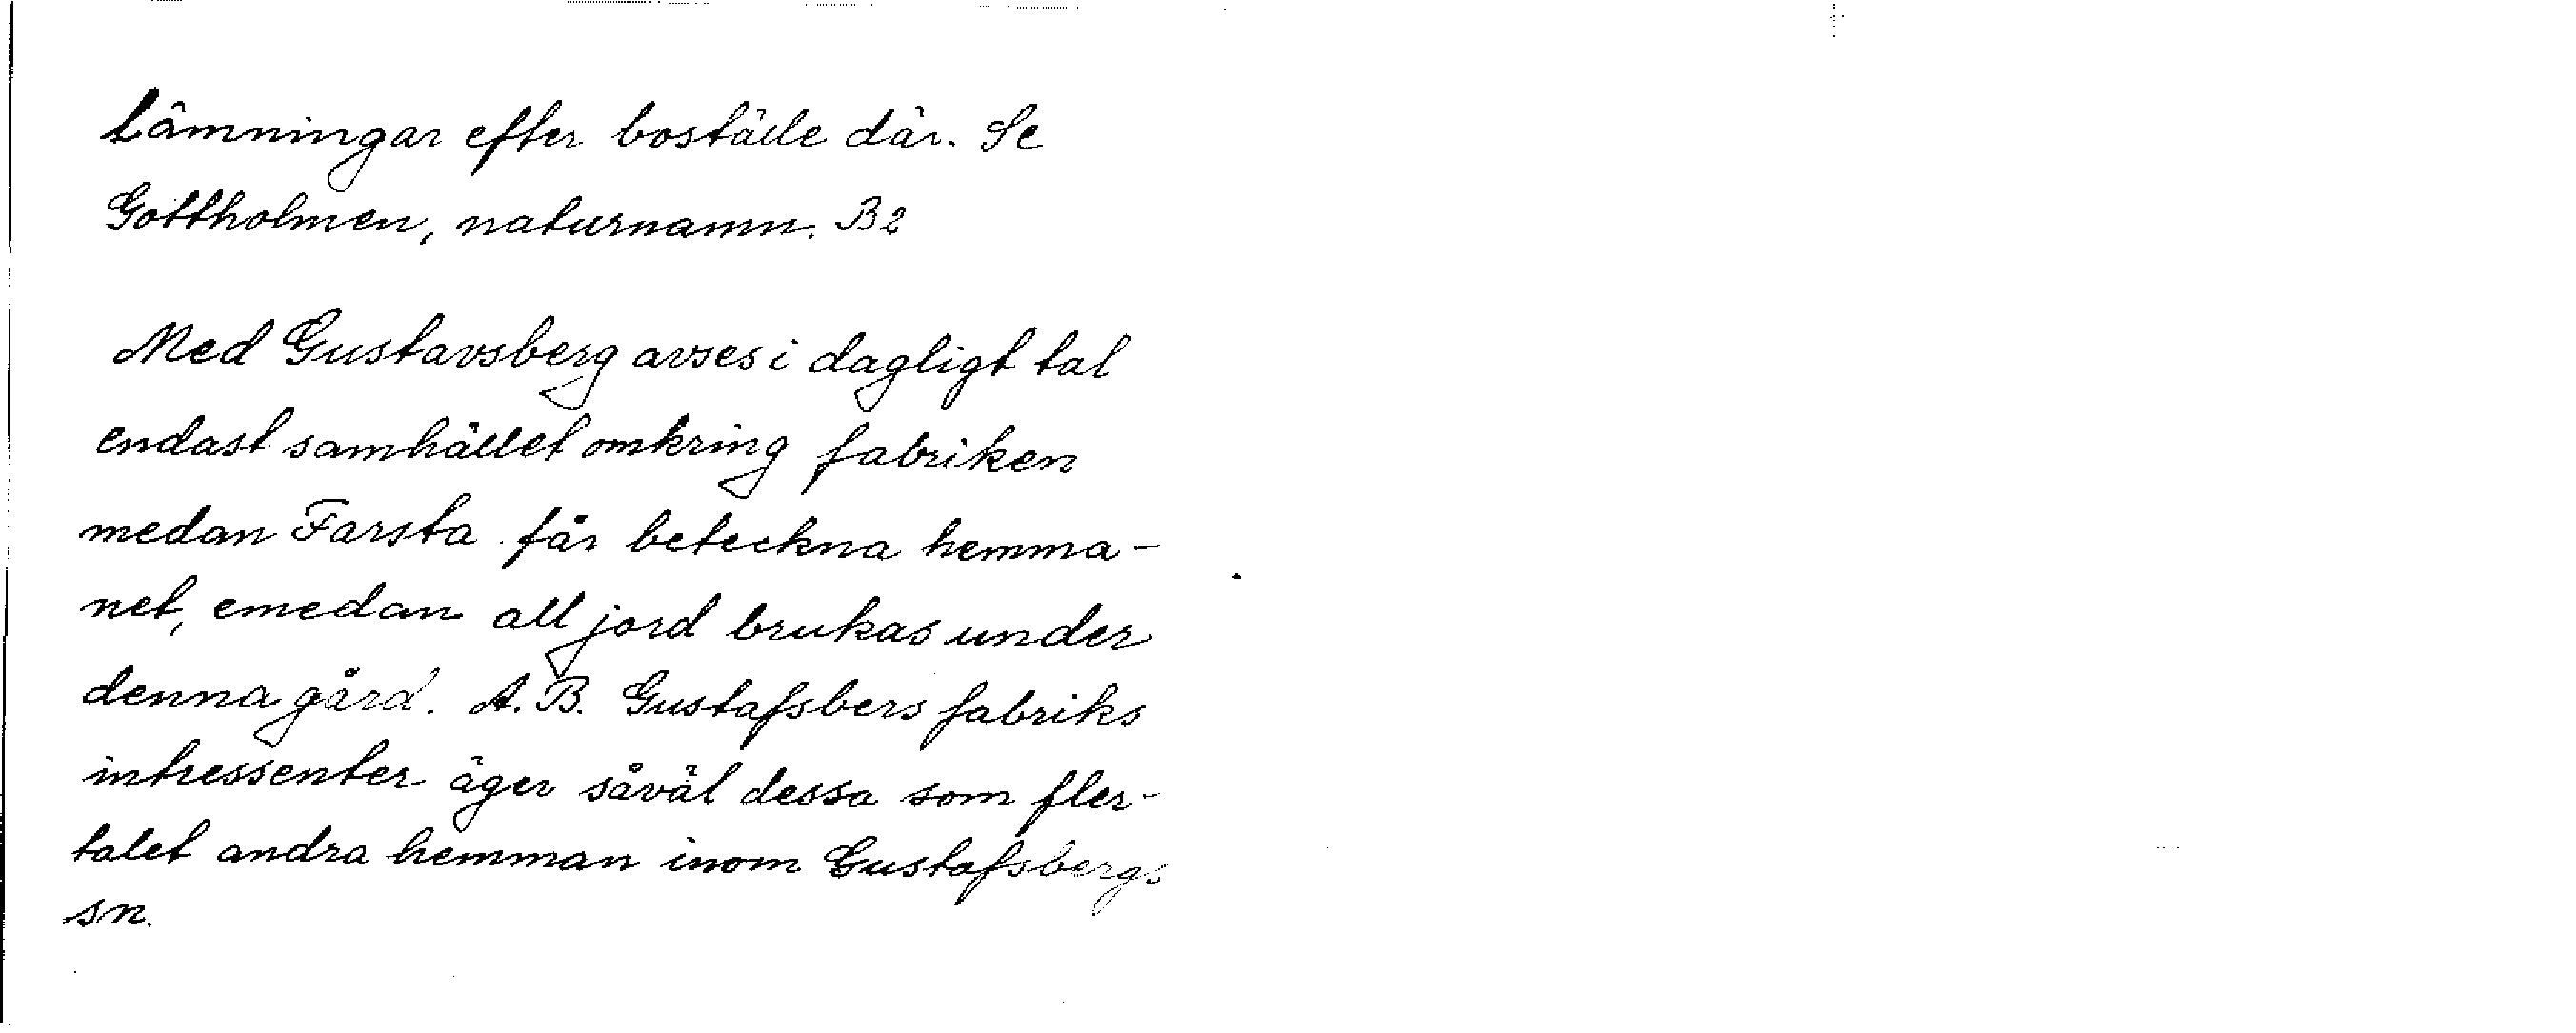 lämningar efter boställe där. Se
Gottholmen, naturnamn. B2
Med Gustavsberg avses i dagligt tal
endast samhället omkring fabriken
medan Farsta får beteckna hemma-
net, emedan all jord brukas under
denna gård. A.B. Gustafsbers fabriks
intressenter äger såväl dessa som fler-
talet andra hemman inom Gustafsbergs
sn.